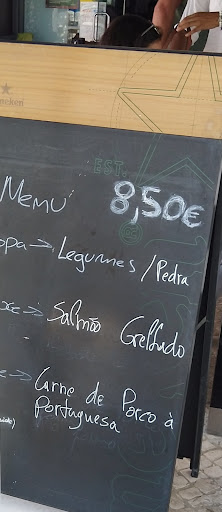 EST.
Menu 8,50€
opa → Legumes / Pedra
→ Salmão Grelhado
→ Carne de Porco à
Portuguesa